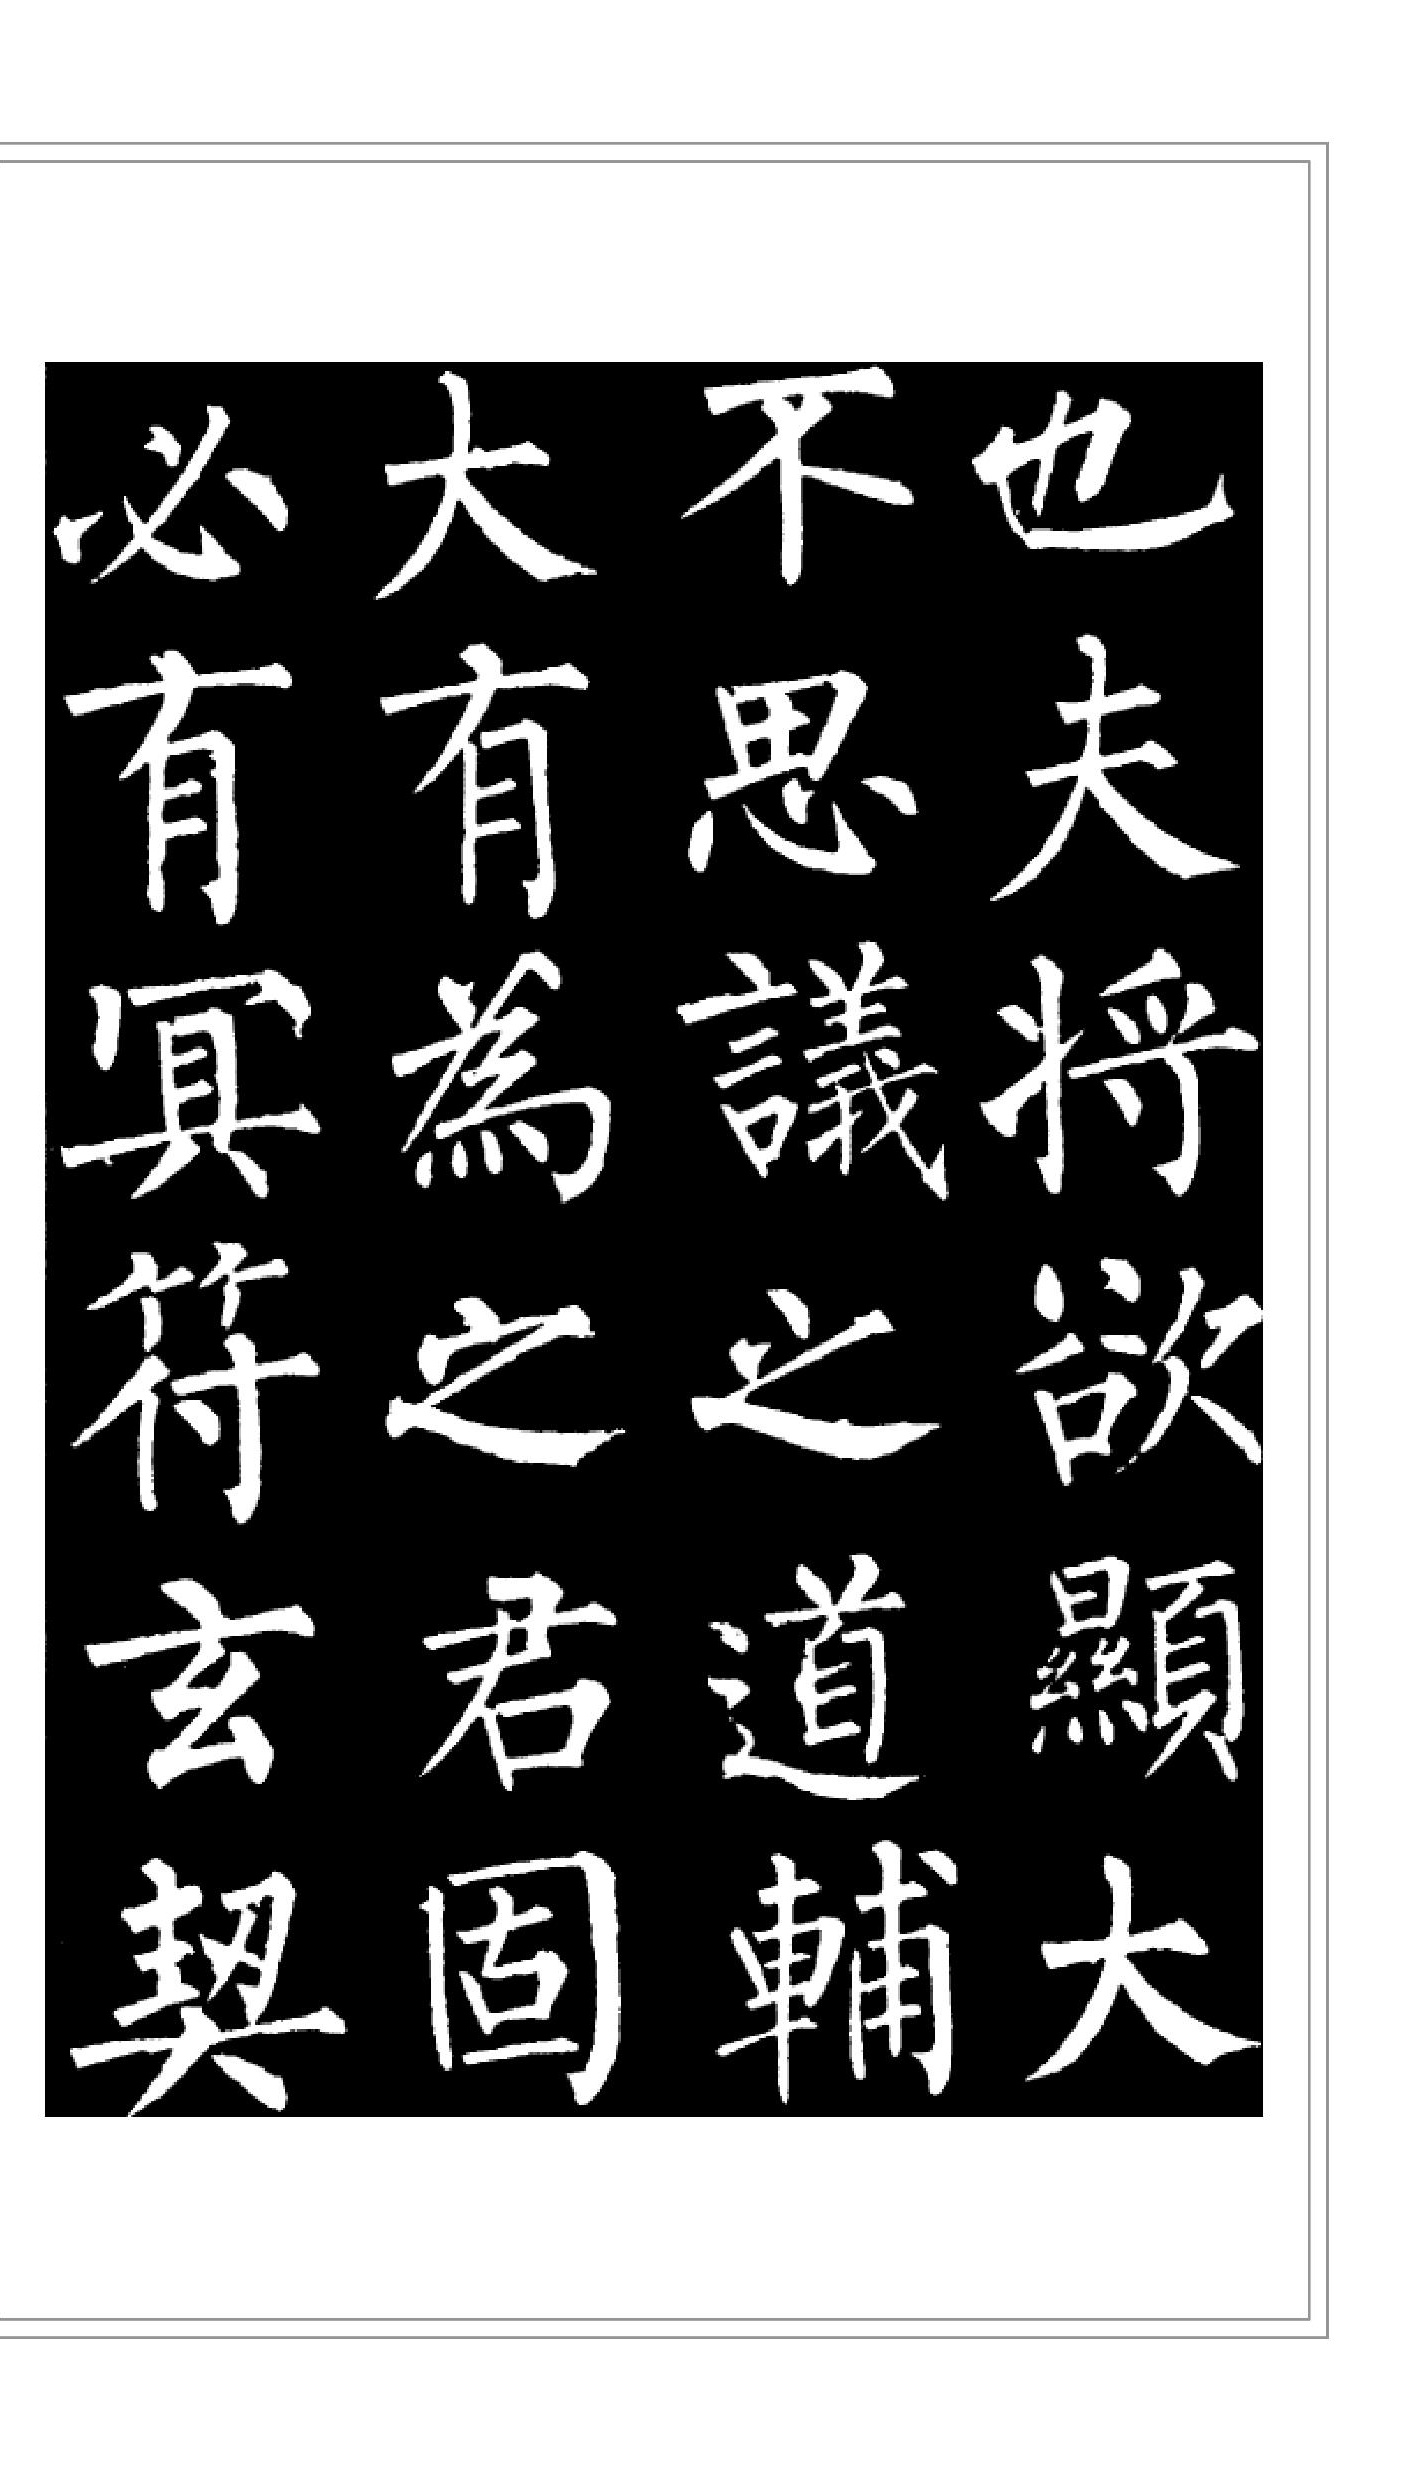 也夫将欲顯大
不思議之道輔
大有為之君固
必有冥符玄契